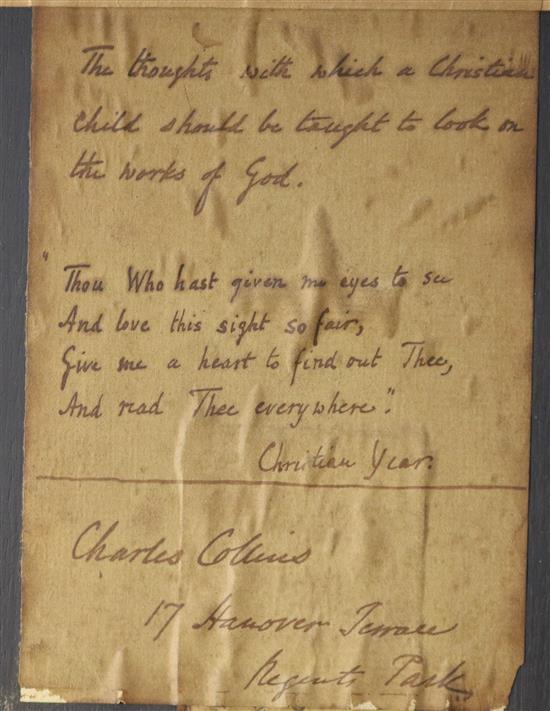 The thoughts with which a Christian
child should be taught to look on
the works of God.
"Thou Who hast given me eyes to see
And love this sight so fair,
Give me a heart to find out Thee,
And read Thee everywhere".
Christian Year.
Charles Collins
17 Hanover Terrace
Regents Park